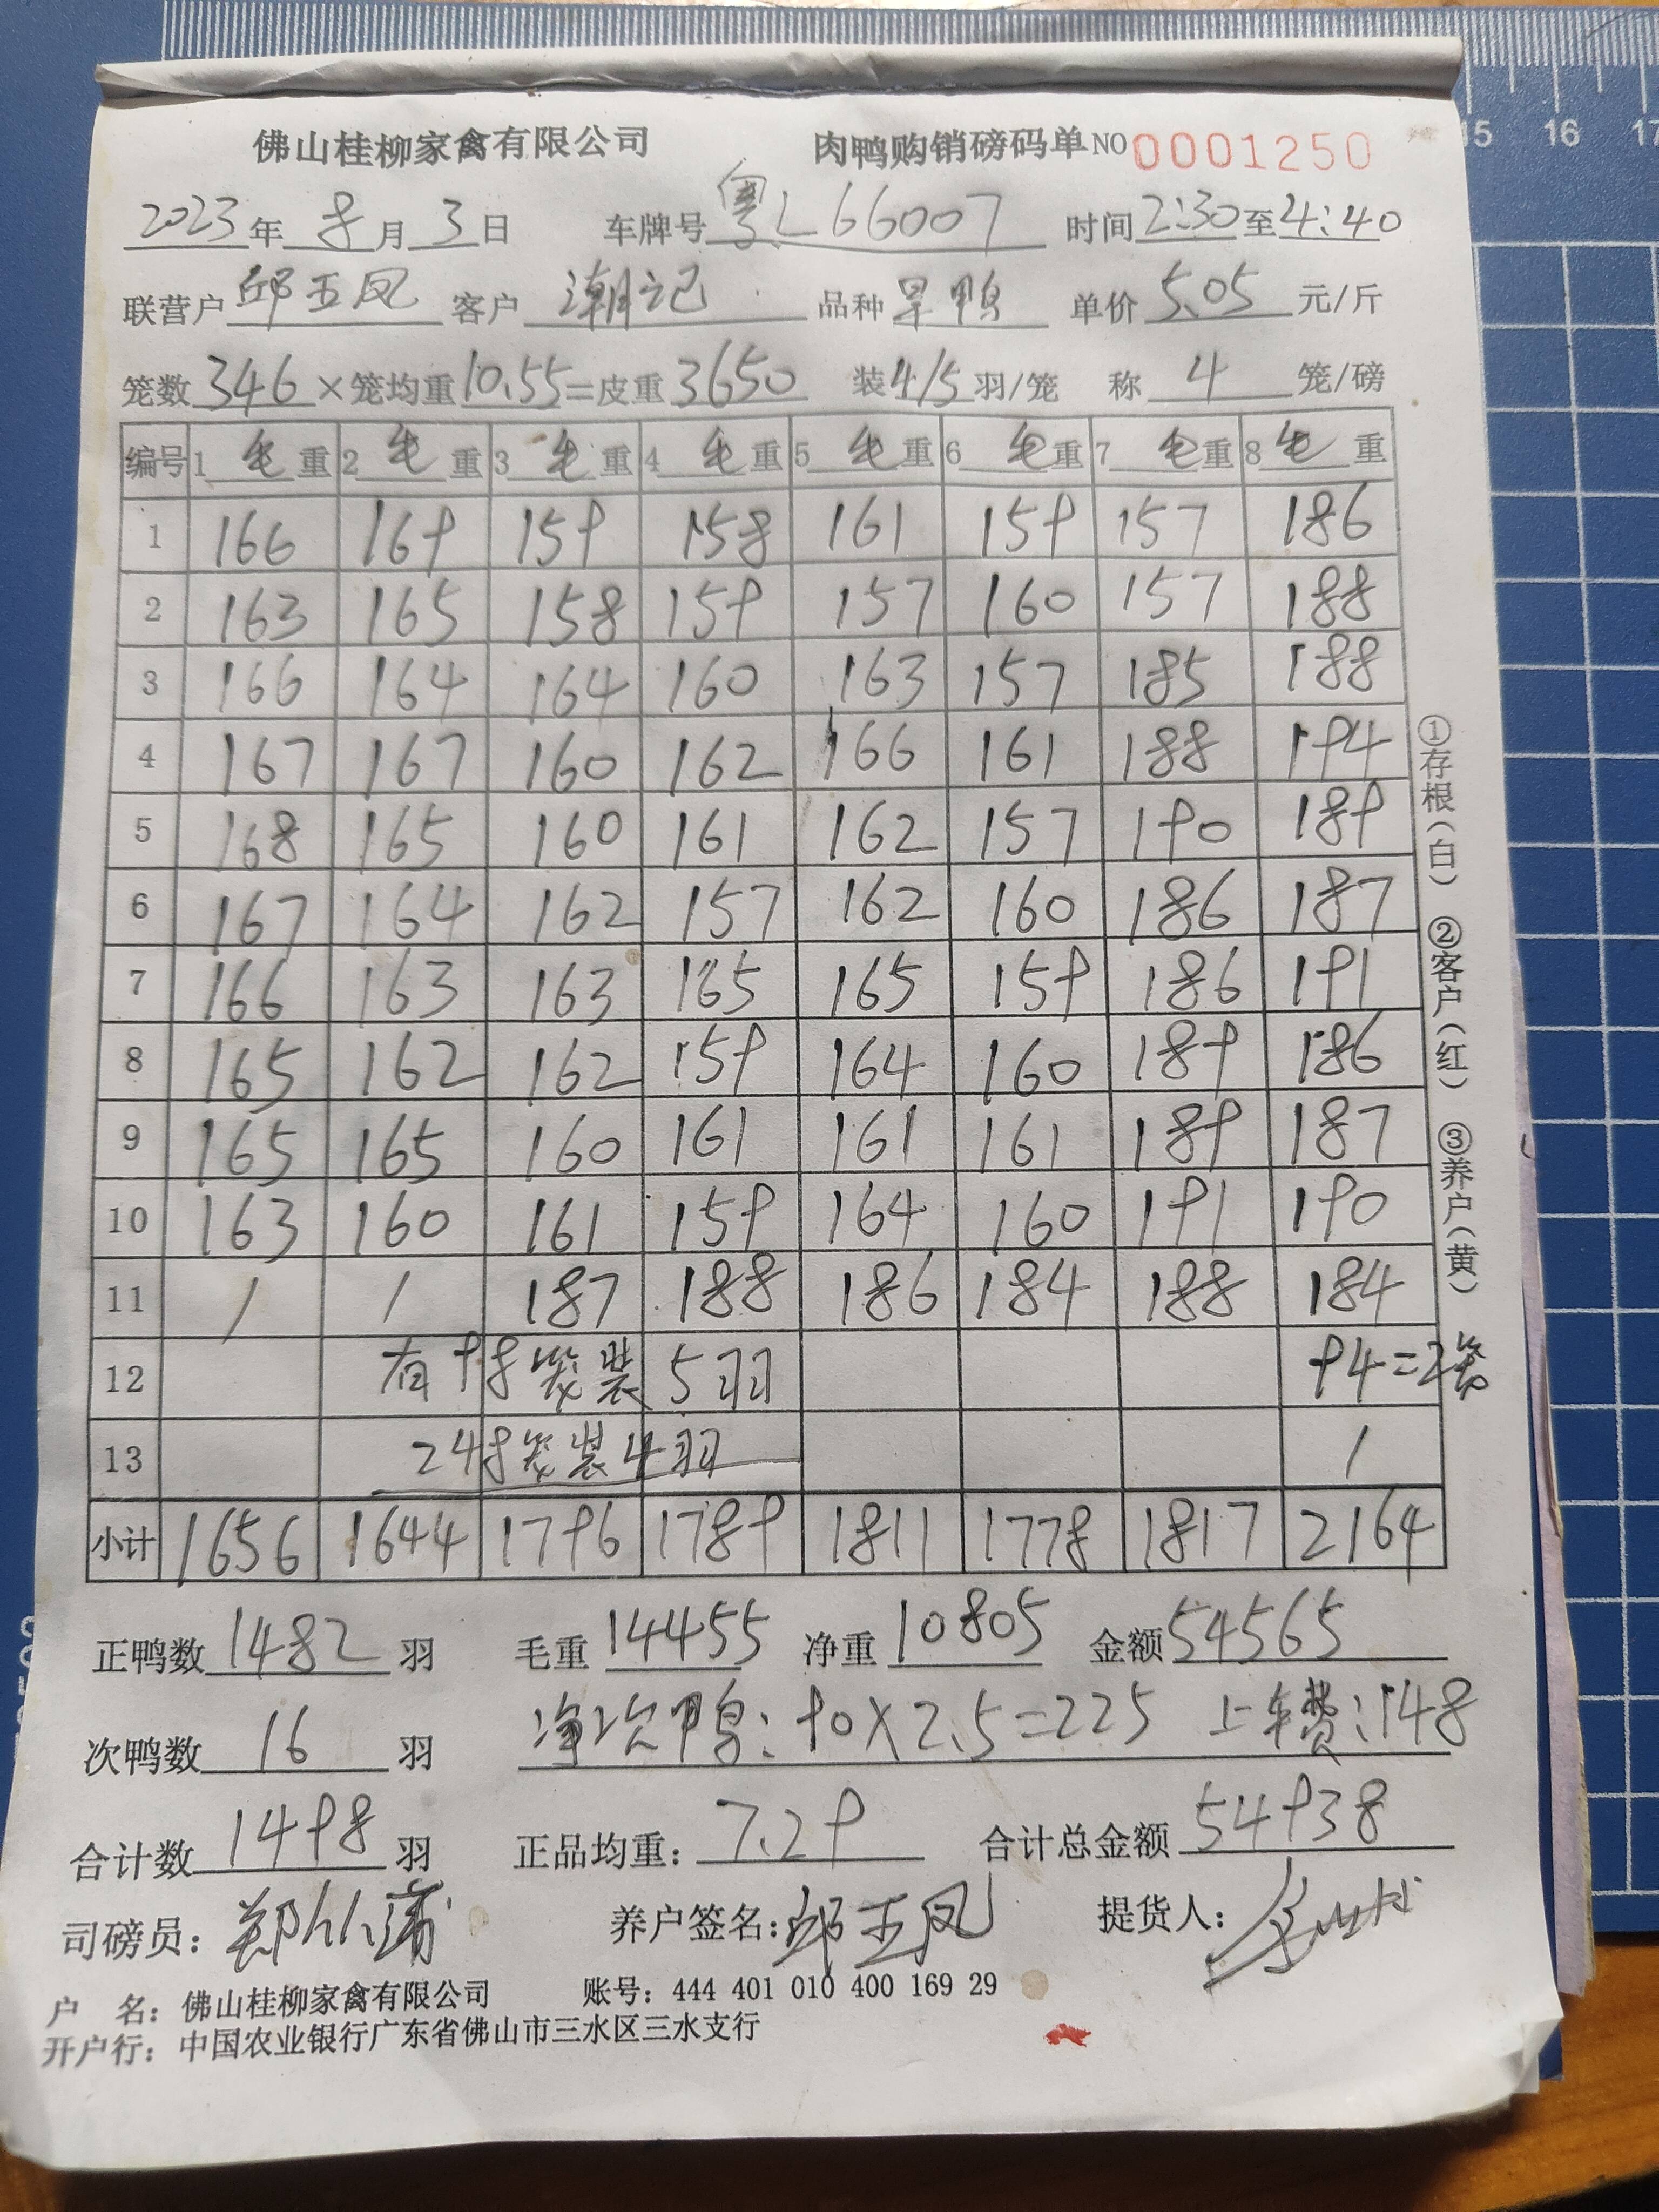 佛山桂柳家禽有限公司 肉鸭购销磅码单 NO 0001250
2023年8月3日 车牌号 粤L66007 时间 2:30 至 4:40
联营户 邱玉凤 客户 潮记 品种 旱鸭 单价 5.05 元/斤
笼数 346 ×笼均重 10.55 =皮重 3650 装 4/5 羽/笼 称 4 笼/磅
编号 1 毛重 2 毛重 3 毛重 4 毛重 5 毛重 6 毛重 7 毛重 8 毛重
1 166 169 159 158 161 159 157 186
2 163 165 158 159 157 160 157 188
3 166 164 164 160 163 157 185 188
4 167 167 160 162 166 161 188 194
5 168 165 160 161 162 157 190 189
6 167 164 162 157 162 160 186 187
7 166 163 163 165 165 159 186 191
8 165 162 162 159 164 160 189 186
9 165 165 160 161 161 161 189 187
10 163 160 161 159 164 160 191 190
11 / / 187 188 186 184 188 184
12 有98笼装5羽 94=2笼
13 248笼装4羽 /
小计 1656 1644 1796 1789 1811 1778 1817 2164
正鸭数 1482 羽 毛重 14455 净重 10805 金额 54565
次鸭数 16 羽 净次鸭:90×2.5=225 上车费:148
合计数 1498 羽 正品均重: 7.29 合计总金额 54938
司磅员: 郑 养户签名: 邱玉凤 提货人:
户 名: 佛山桂柳家禽有限公司 账号: 444 401 010 400 169 29
开户行: 中国农业银行广东省佛山市三水区三水支行
①存根(白) ②客户(红) ③养户(黄)
15 16 17